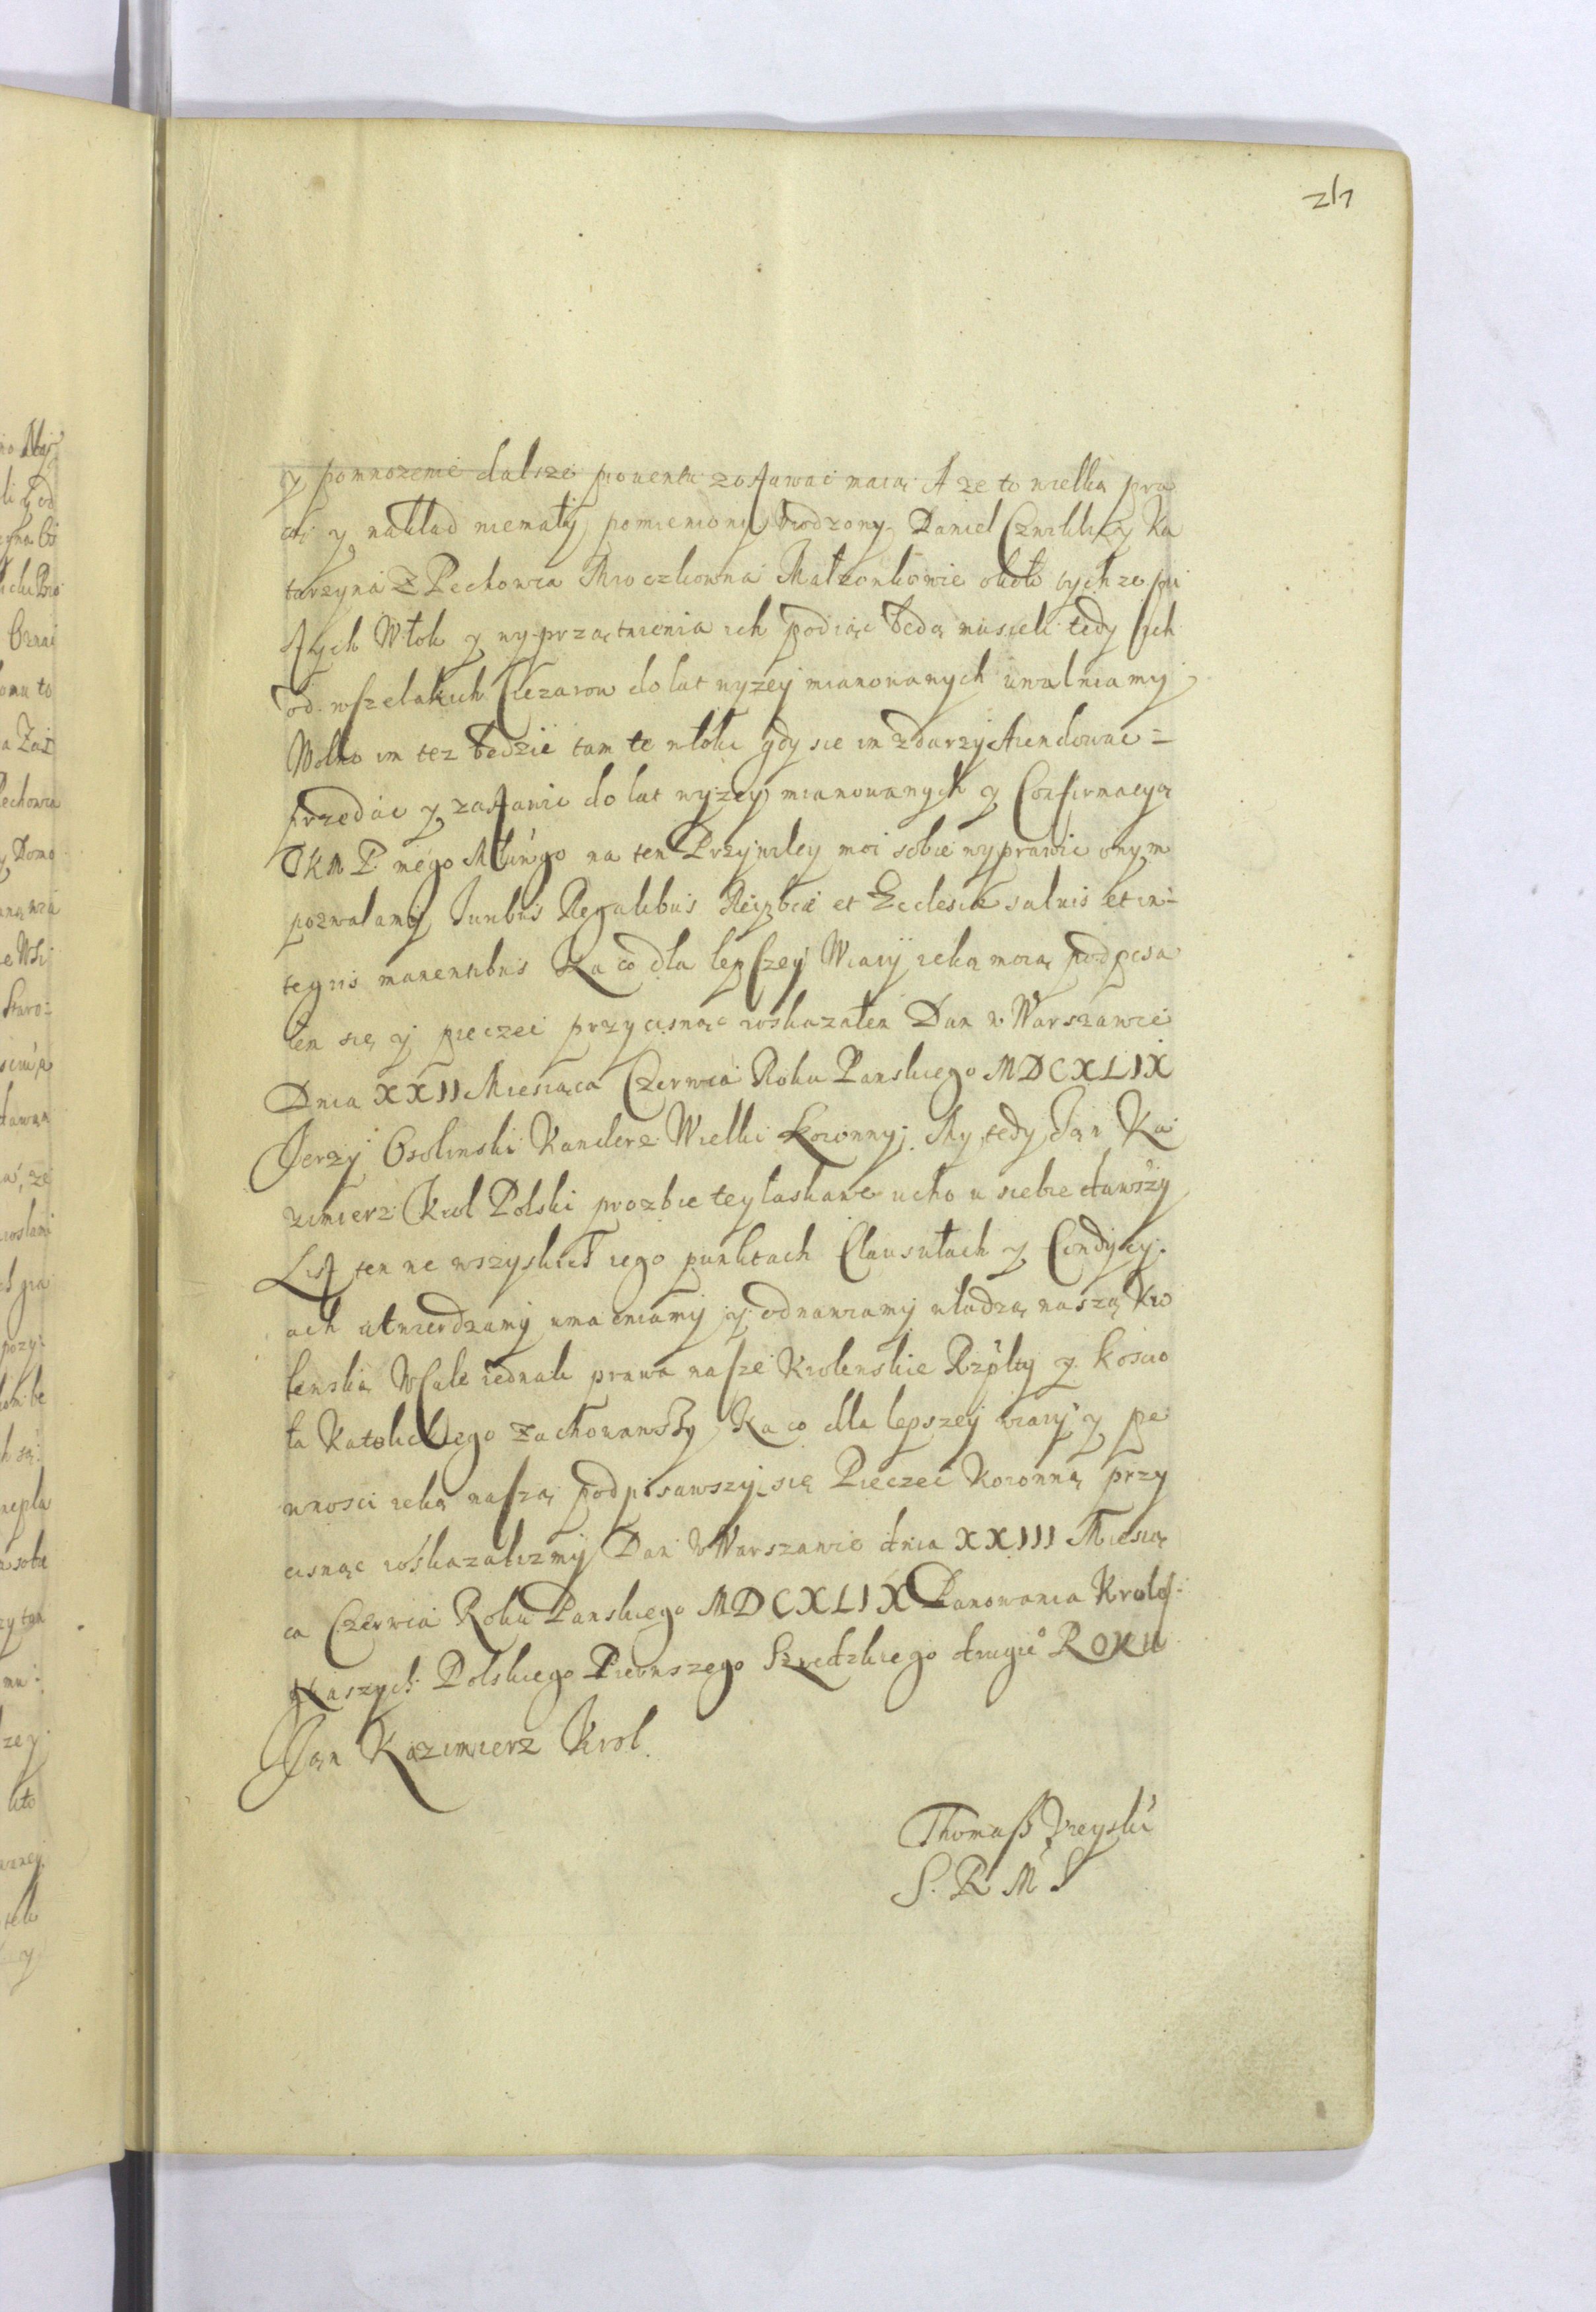 y pomnozenie dalsze prouentu zostawac maią A ze to wielką pra
cą y nakład niemały pomieniony Urodzony Daniel y Ka
tarzyna Z Pechowca Mroczkowna Małzonkowie około tychze pu
stych Włok y wyprzątnienia ich podiąc będą musieli tedy ich
od wszelakich Ciezarow do lat wyzey mianowanych uwalniamy
Wolno im tez będzie tam te włoki gdy sie im zdarzy Arendowac=
przedac y zastawic do lat wyzey mianowanych y Confirmacyą
JKM P. mego Młwego na ten Przywiley moi sobie wyprawic onym
pozwalamy Iuribus Regalibus Reipbcae et Ecclesiae saluis et in=
tegris manentibus Na co dla lepszey Wiary ręką moią podpisa
łem się y pieczec przycisnąc roskazałem Dan w Warszawie
Dnia XXII Miesiąca Czerwca Roku Panskiego MDCXLIX
Jerzy Osolinski Kanclerz Wielki Koronny. My tedy Jan Ka
zimierz Krol Polski prozbie tey łaskawe ucho u siebie dawszy
List ten we wszyskich iego punktach Clausułach y Condycy
ach utwierdzamy umacniamy y odnawiamy władzą naszą Kro
lewską Wcale iednak prawa nasze Krolewskie Rzplty y koscio
ła Katolickiego zachowawszy Na co dla lepszey wiary y pe
wnosci ręką naszą podpisawszy się Pieczec Koronną przy
cisnąc roskazalismy Dan w Warszawie dnia XXIII Miesią
ca Czerwca Roku Panskiego MDCXLIX Panowania Krolest
Naszych Polskiego Pierwszego Szwedzkiego drugie° ROKU
Jan Kazimierz Krol.
Thomasz
S. R M S